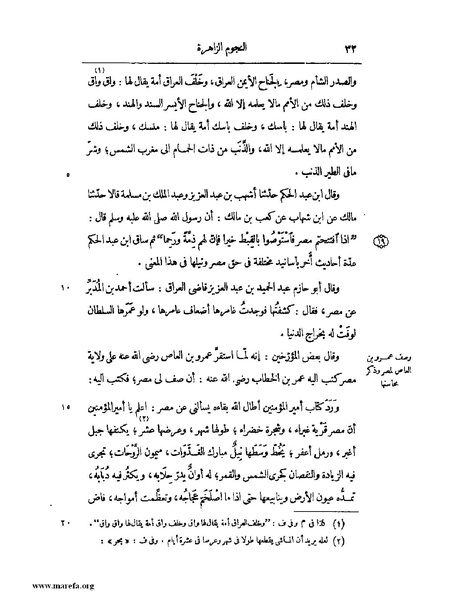 ٣٢ النجوم الزاهرة
والصدر الشأم ومصر، والجناح الأيمن العراق، وخَلْفَ العراق أمة يقال لها : واق واق (١)
وخلف ذلك من الأمم مالا يعلمه إلا الله، والجناح الأيسر السند والهند، وخلف
الهند أمة يقال لها : باسك، وخلف باسك أمة يقال لها : منسك، وخلف ذلك
من الأمم مالا يعلمه إلا الله، والذَّنَب من ذات الحمام الى مغرب الشمس؛ وشرّ
مافى الطير الذنب . ٥
وقال ابن عبد الحكم حدّثنا أشهب بن عبد العزيز وعبد الملك بن مسلمة قالا حدّثنا
مالك عن ابن شهاب عن كعب بن مالك : أن رسول الله صلى الله عليه وسلم قال :
”اذا آفتتحتم مصر فآسْتَوْصُوا بالقِبْط خيرا فإن لهم ذمّةً ورَحِما“ ثم ساق ابن عبد الحكم
١٩
عدّة أحاديث أُخر بأسانيد مختلفة فى حق مصر ونيلها فى هذا المعنى .
وقال أبو حازم عبد الحميد بن عبد العزيز قاضى العراق : سألت أحمد بن المُدَبِّر ١٠
عن مصر، فقال : كشفتُها فوجدتُ غامرها أضعاف عامرها، ولو عمرّها السلطان
لوفَتْ له بخراج الدنيا .
وقال بعض المؤرّخين : إنه لمّا استقرّ عمرو بن العاص رضى الله عنه على ولاية
وصف عمرو بن
العاص لمصر وذكر
محاسنها
مصر كتب اليه عمر بن الخطاب رضى الله عنه : أن صف لى مصر؛ فكتب اليه :
وَرَدَ كتاب أمير المؤمنين أطال الله بقاءه يسألنى عن مصر : اعلم يا أمير المؤمنين ١٥
أن مصر قرية غبراء، وشجرة خضراء؛ طولها شهر، وعرضها عشر(٢)؛ يكنفها جبل
أغبر، ورمل أعفر؛ يَخُطّ وَسَطَها نيلٌ مبارك الغَدَوات، ميمون الرَّوْحات؛ تجرى
فيه الزيادة والنقصان بَكْرى الشمس والقمر؛ له أوانٌ يدرّ حِلابه، ويكثر فيه ذُبَابُه،
تمدّه عيون الأرض وينابيعها حتى اذا ما اصلَخَمّ عَجَاجُه، وتعظّمت أمواجه، فاض
(١) كذا فى م وفى ف : ”وخلف العراق أمة يقال لها واق وخلف واق أمة يقال لها واق واق“ .
(٢) لعله يريد أن الماشى يقطعها طولا فى شهر وعرضا فى عشرة أيام . وفى ف : « بحر » : ٢٠
www.marefa.org